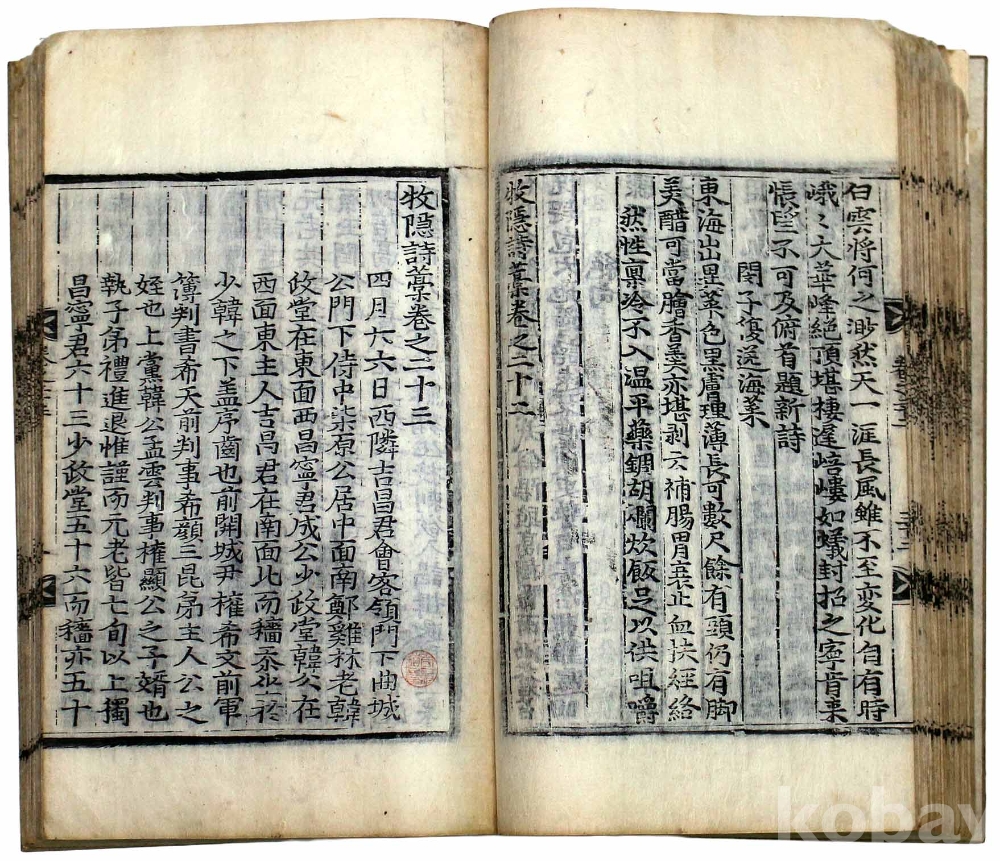 白雲将何之渺然天一涯長風雖不至変化自有時
峨〻大華峰絶頂堪棲遲峿嶁如蟻封招之寧肯来
悵望不可及俯首題新詩
閔子復送海菜
東海出昆菜色黒膚理薄長可數尺餘有頭仍有脚
美醋可當膾香羹亦堪剥云補腸胃衰止血扶經絡
然性稟冷不入温平藥鋼胡爛炊飯足以供咀嚼
牧隱詩藁卷之二十二
牧隱詩藁卷之二十三
四月六六日西隣吉昌君會客領門下曲城
公門下侍中柒原公居中面南鄭雞林老韓
政堂在東面西昌寧君成公少政堂韓公在
西面東主人吉昌君在南面北而穡忝坐於
少韓之下盖序齒也前開城尹權希文前軍
簿判書希天前判事希顔三昆弟主人公之
姪也上黨韓公孟雲判事權顯公之子壻也
執子弟禮進退惟謹而元老皆七旬以上獨
昌寧君六十三少政堂五十六而穡亦五十
kobay